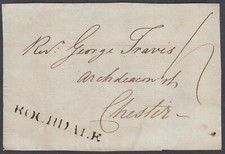 Revd. George Travis
Archdeacon of
Chester
ROCHDALE